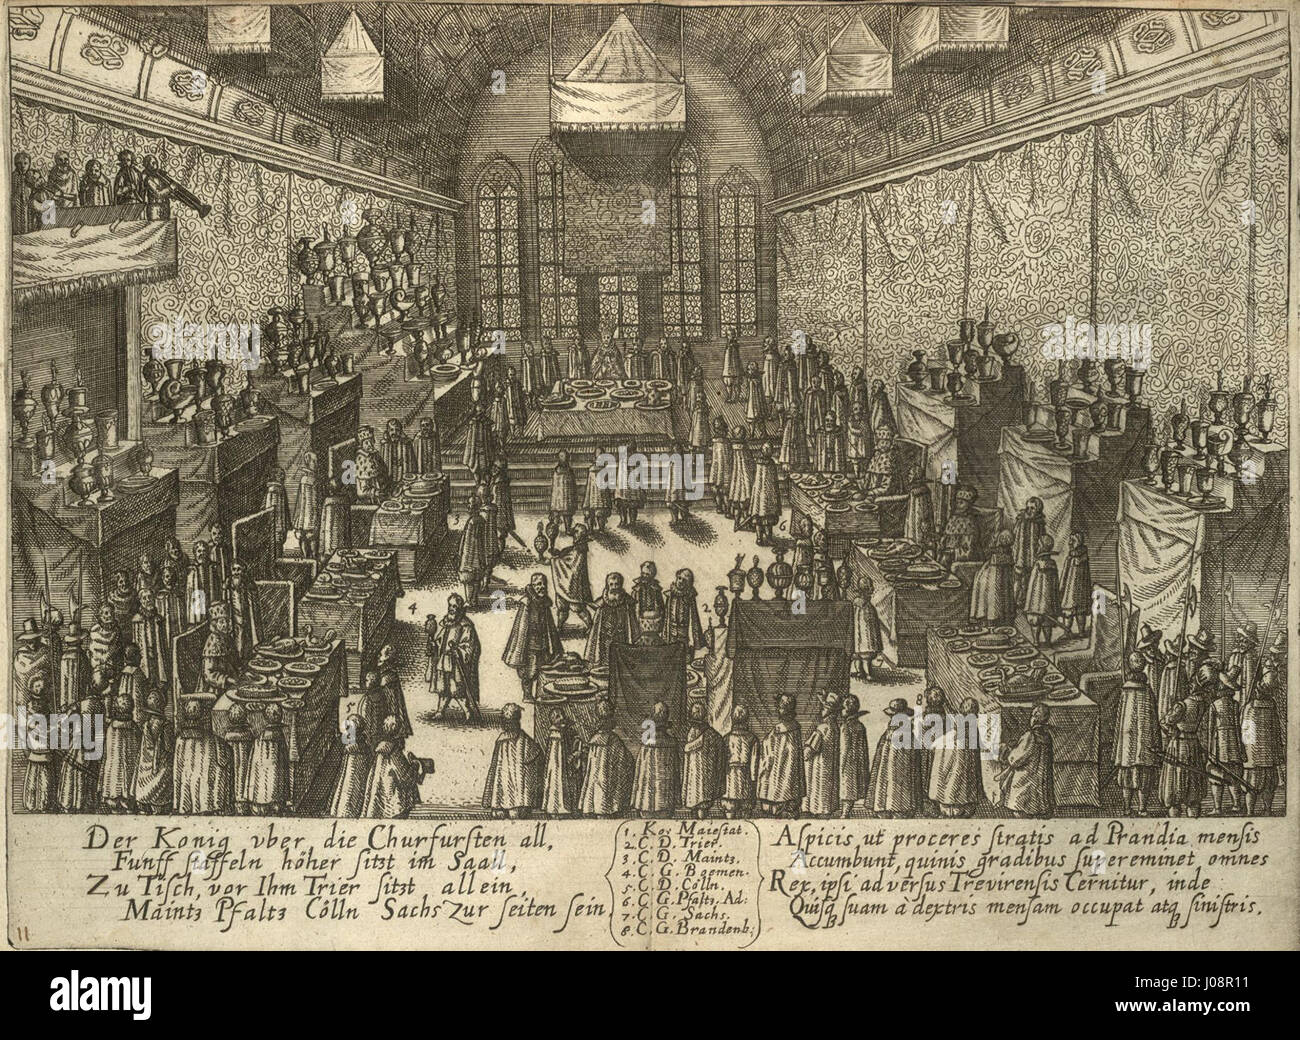 Der König vber die Churfürsten all,
Funff staffeln höher sitzt im Saall,
Zu Tisch, vor Ihm Trier sitzt allein,
Maintz Pfaltz Cölln Sachs zur seiten sein
1. Koƞ Maiestat.
2. C. D. Trier.
3. C. D. Maintz.
4. C. G. Boemen.
5. C. D. Cölln.
6. C. G. Pfaltz. Ad:
7. C. G. Sachs.
8. C. G. Brandenb:
Aspicis, ut proceres stratis ad Prandia mensis
Accumbunt, quinis gradibus supereminet omnes
Rex, ipsi adversus Trevirensis Cernitur, inde
Quisq suam à dextris mensam occupat atq sinistris.
11
2
3
4
5
6
8
a
alamy
Image ID: J08R11
www.alamy.com